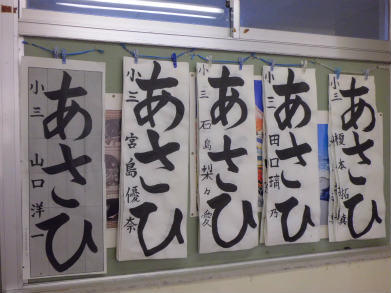 あさひ
小三 山口洋一
あさひ
小三 宮島優奈
あさひ
小三 石島梨々愛
あさひ
小三 田口瑞乃
あさひ
小三 榎本拓真